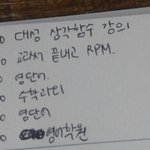 ○ 대성 삼각함수 강의
○ 교과서 끝내고 RPM.
○ 영단어.
○ 수학과타
○ 영단어
○ 영어학원